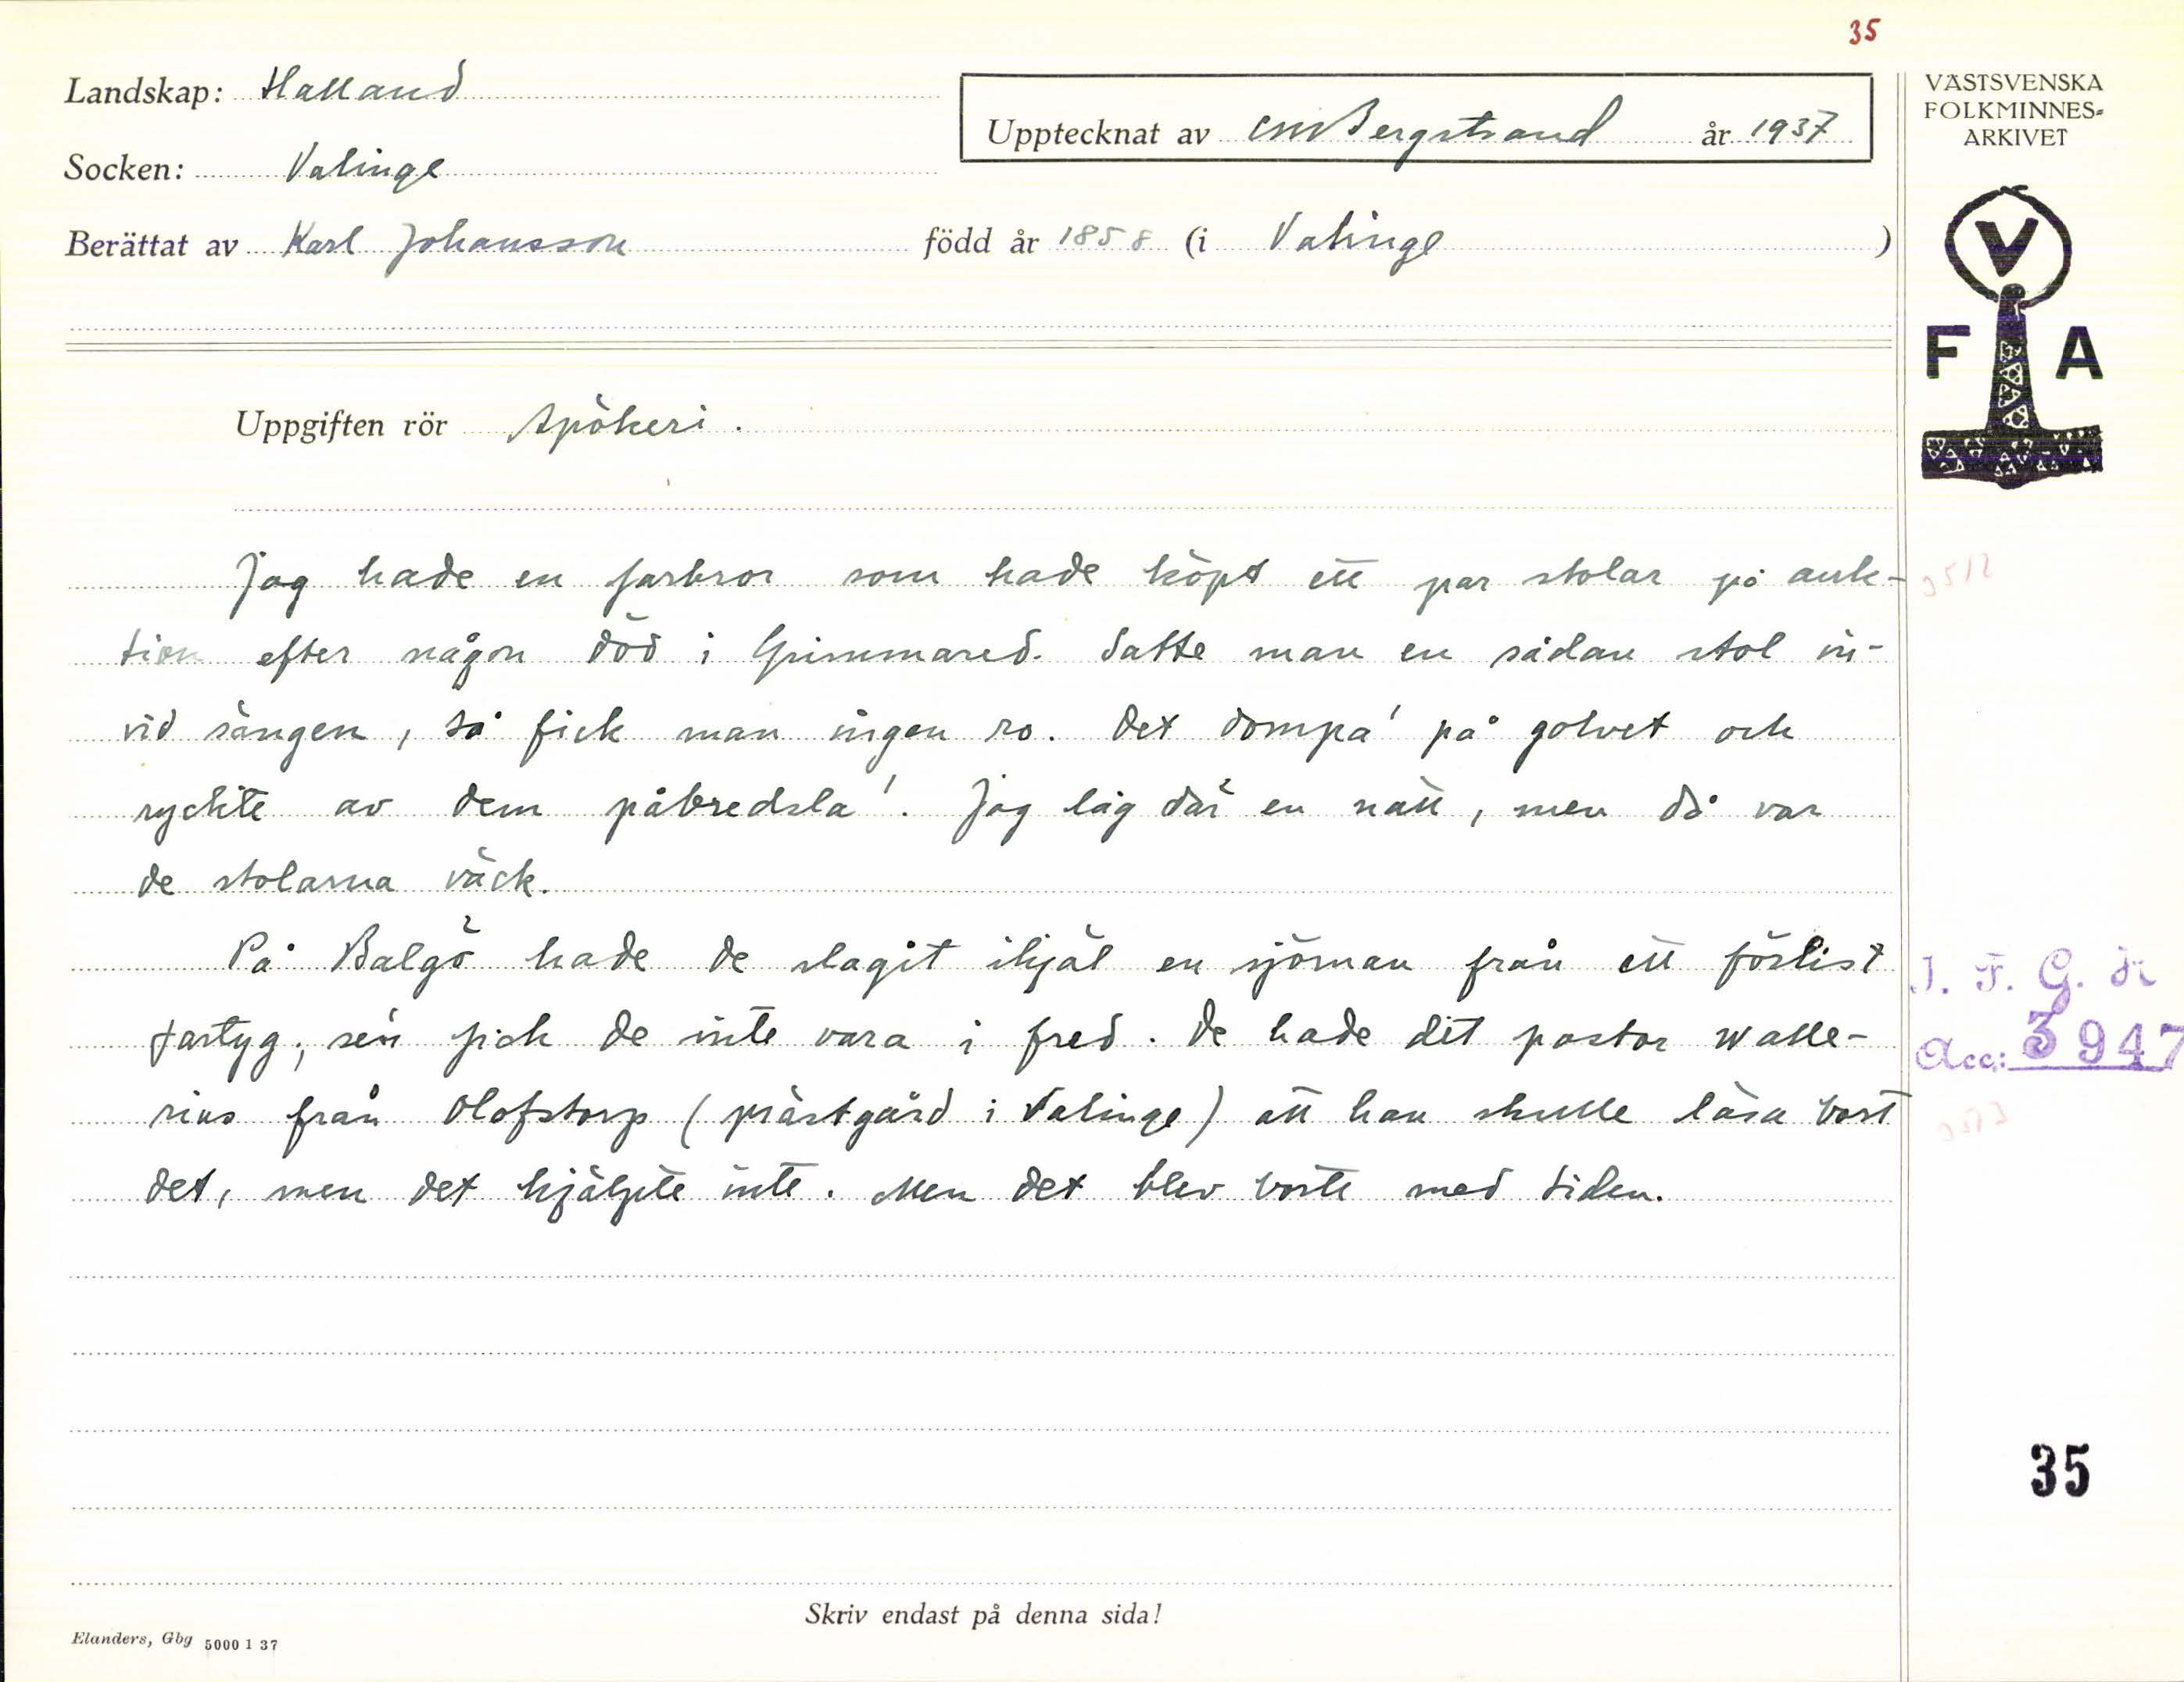 35
Landskap: Halland
Upptecknat av CMBergstrand år 1937
Socken: Valinge
Berättat av Karl Johansson född år 1858 (i Valinge )
VÄSTSVENSKA
FOLKMINNES=
ARKIVET
V
F A
Uppgiften rör Spökeri.
Jag hade en farbror som hade köpt ett par stolar på auk-
tion efter någon död i Grimmared. Satte man en sådan stol in-
vid sängen, så fick man ingen ro. Det dompa' på golvet och
ryckte av dem påbredsla'. Jag låg där en natt, men då var
de stolarna väck.
På Balgö hade de slagit ihjäl en sjöman från ett förlist
fartyg; sen fick de inte vara i fred. De hade dit pastor Walle-
rius från Olofstorp (prästgård i Valinge) att han skulle läsa bort
det, men det hjälpte inte. Men det blev borte med tiden.
I. F. G. H
Acc: 3947
35
Skriv endast på denna sida!
Elanders, Gbg 5000 1 37